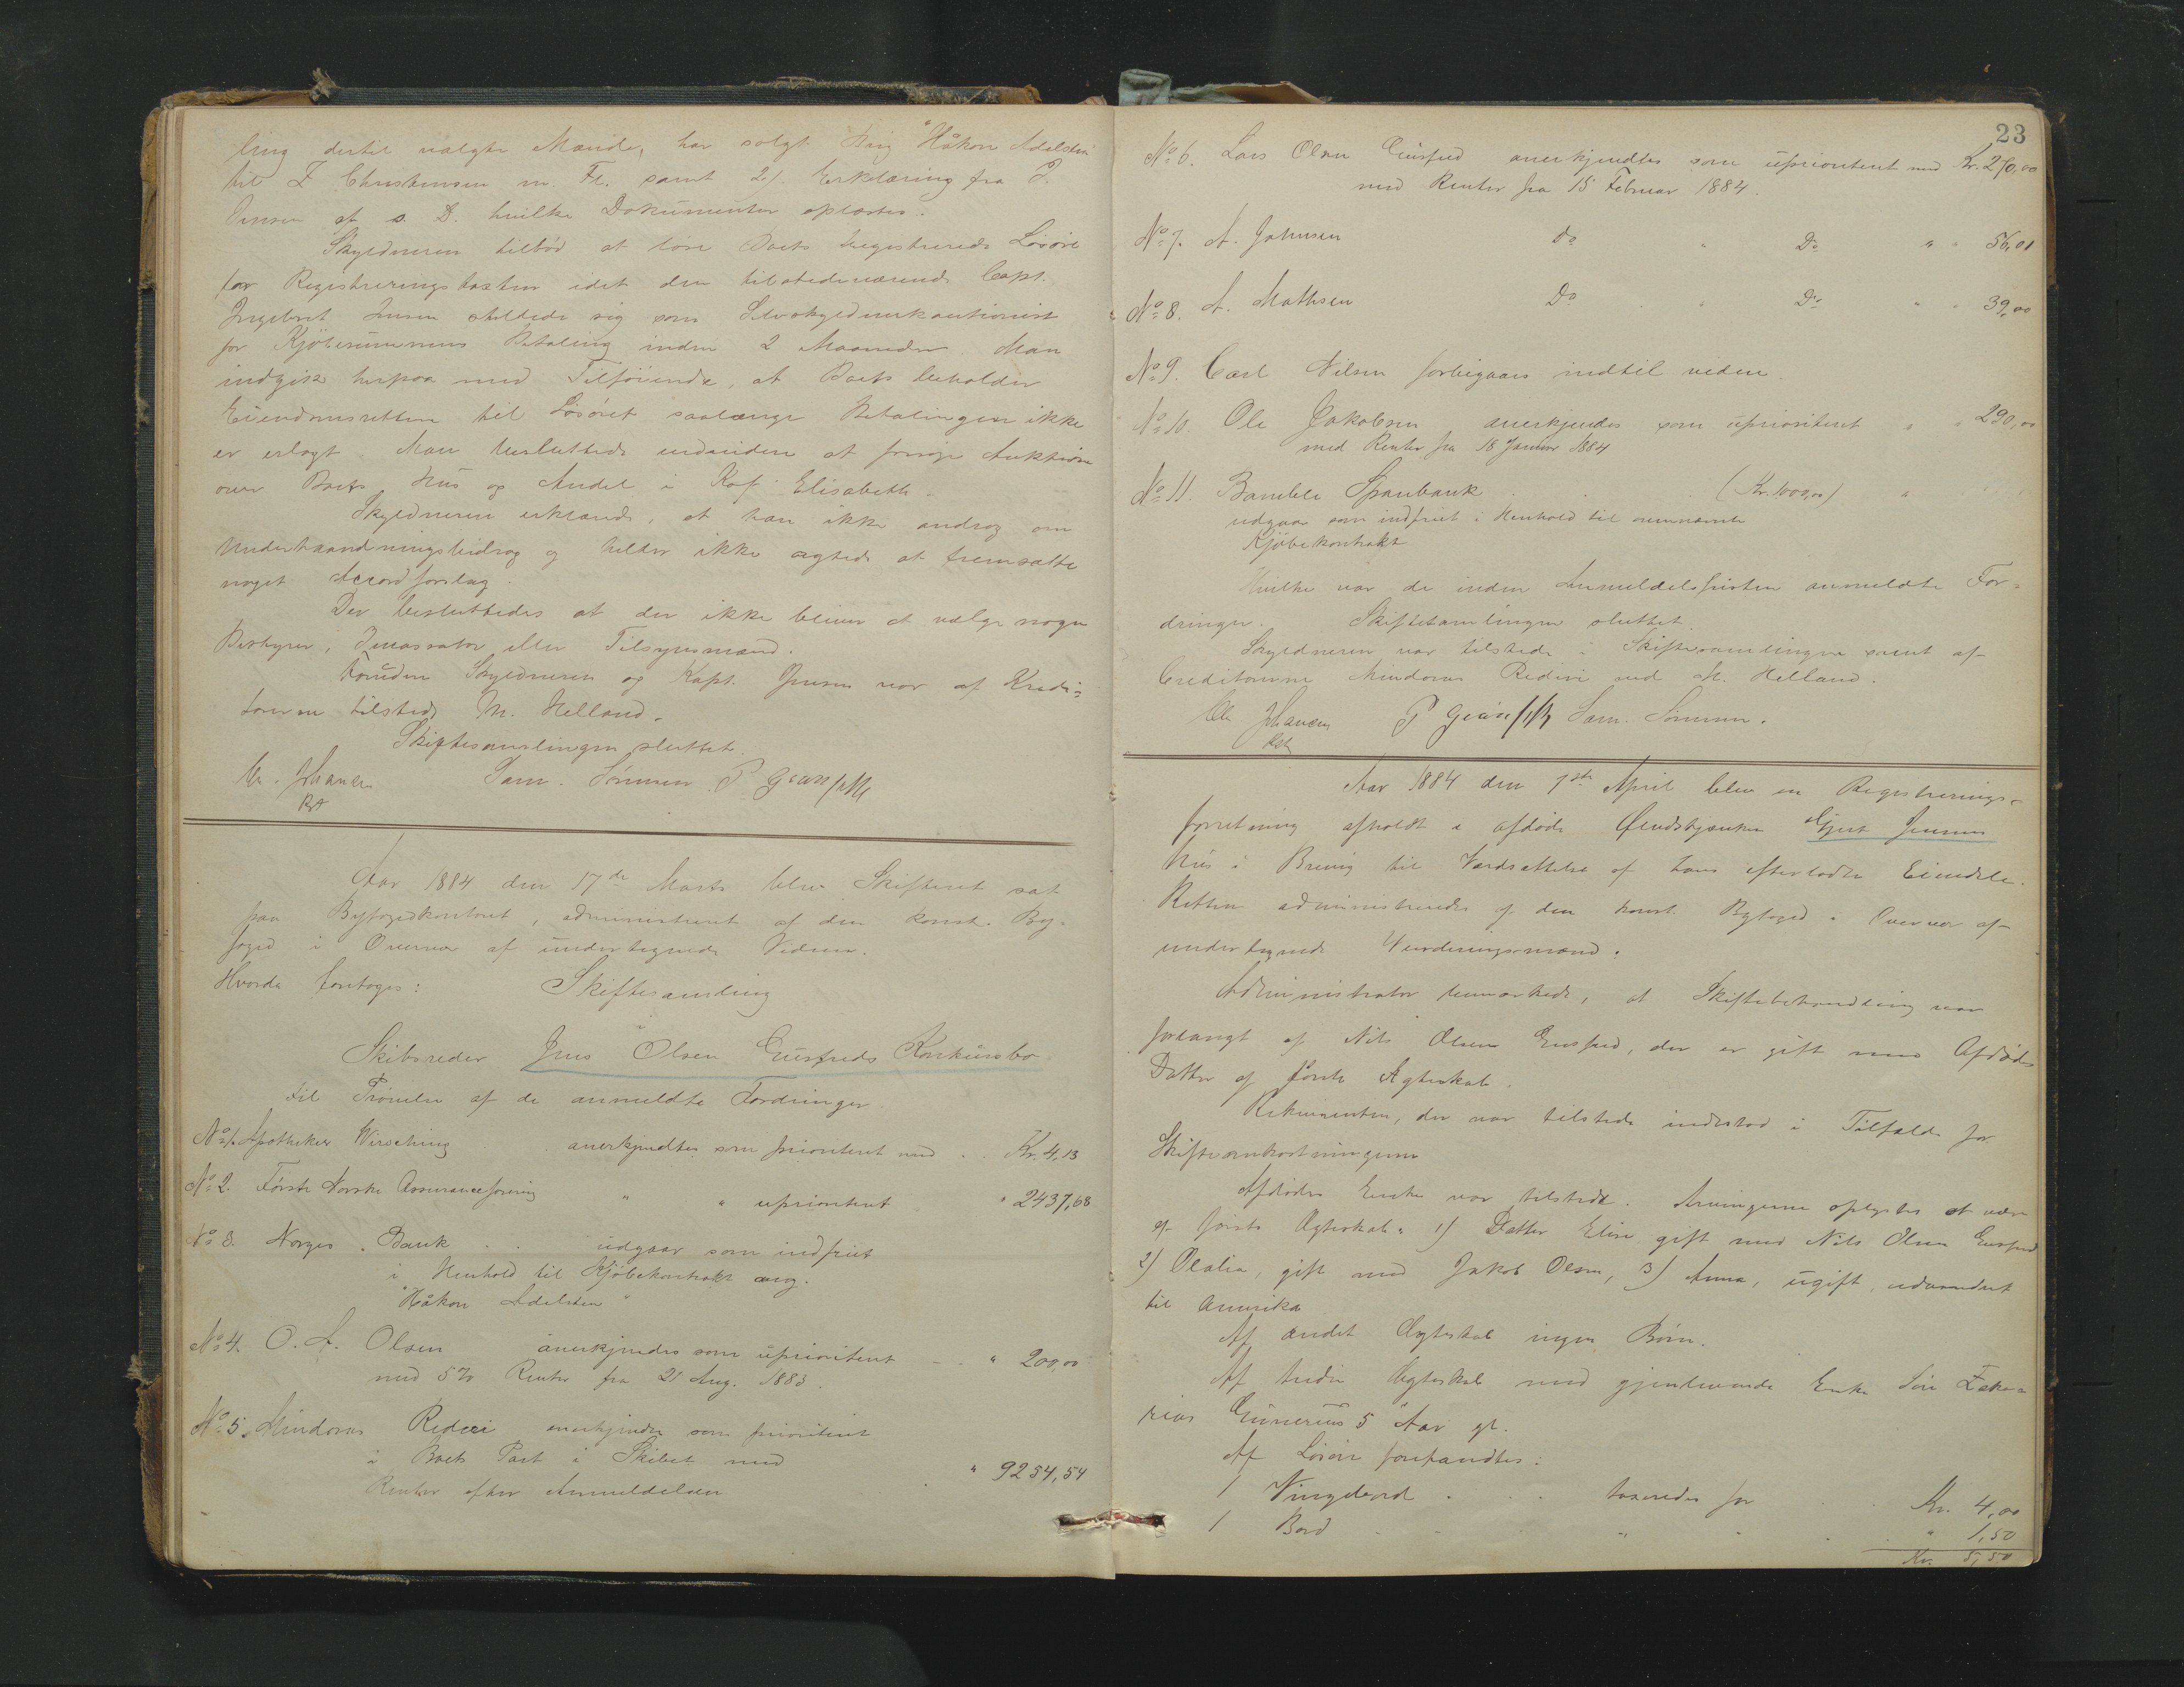 ling dertil valgte Mænd, har solgt Brig "Håkon Adelsten"
til Z Christensen m. Fl. samt 2/. Erklæring fra J.
Jensen af s. D. hvilke Dokumenter oplæstes.
Skyldneren tilbød at løse Boets registrerede Løsøre
for Registreringstaxten idet den tilstedeværende Capt.
Ingebret Jensen stillede sig som Selvskyldnerkautionist
for Kjöbesummens Betaling inden 2 Maaneder. Man
indgik herpaa med Tilföiende, at Boet beholder
Eiendomsretten til Løsøret saalænge Betalingen ikke
er erlagt. Man besluttede endvidere at forsøge Auktion
over Boets Hus og Andel i Kof Elisabeth.
Skyldneren erklærede, at han ikke androg om
Underholdningsbidrag og heller ikke agtede at fremsætte
noget Accordforslag.
Der besluttedes at der ikke bliver at vælge nogen
Bestyrer, Incassator eller Tilsynsmænd.
Foruden Skyldneren og Kapt. Jensen var af Kredi=
torerne tilstede M. Helland.
Skiftesamlingen sluttet.
Johansen Sam. Sörensen P
Kst
Aar 1884 den 17de Marts blev Skifteret sat
paa Byfogedkontoret, administreret af den konst. By-
foged i Overvær af undertegnede Vidner.
Hvorda foretoges: Skiftesamling
i
Skibsreder Jens Olsen Eusfreds Konkursbo
til Prövelse af de anmeldte Fordringer.
No 1. Apotheker Wirsching anerkjendtes som prioriteret med . . Kr. 4,13
No 2. Første Norske Assuranceforening " " uprioriteret " 2437,68
No 3. Norges Bank . . udgaar som indfriet
i Henhold til Kjöbekontrakt ang.
"Håkon Adelsten"
No 4. O. A. Olsen anerkjendes som uprioriteret - . " 200,00
med 5% Renter fra 21 Aug. 1883.
No 5. Mindoras Rederi anerkjendes som prioriteret
i Boets Part i Skibet med
Renter efter Anmeldelsen " 9254,54
23
No 6. Lars Olsen Eusfred anerkjendtes som uprioriteret med Kr. 270,00
med Renter fra 15 Februar 1884.
No 7. A. Johnsen do " Do " " 56,01
No 8. A. Mathsen Do " Do " " 39,00
No 9. Carl Nilsen forbigaaes indtil videre.
No 10. Ole Jakobsen anerkjendes som uprioriteret " " 290,00
med Renter fra 18 Januar 1884
No 11. Bamble Sparebank . . (Kr. 1000,00) "
udgaar som indfriet i Henhold til ovennævnte
Kjöbekontrakt
Hvilke var de inden Anmeldelsfristen anmeldte For=
dringer. Skiftesamlingen sluttet.
Skyldneren var tilstede i Skiftesamlingen samt af
Creditorerne Mindoras Rederi ved M. Helland.
Johansen P Sam. Sörensen.
Kst
Aar 1884 den 7de April blev en Registrerings-
forretning afholdt i afdöde Gjert Jensens
Hus i Brevig til Værdsættelse af hans efterladte Eiendele.
Retten administreredes af den konst. Byfoged i Overvær af
undertegnede Vurderingsmænd.
Administrator bemærkede, at Skiftebehandling var
forlangt af Nils Olsen Eusfred, der er gift med Afdødes
Datter af første Ægteskab.
Rekvirenten, der var tilstede indestod i Tilfælde for
Skifteomkostningerne
Afdødes Enke var tilstede. Arvingerne oplystes at være
af første Ægteskab: 1) Datter Elise gift med Nils Olsen Eusfred
2) Olalia, gift med Jakob Olsen, 3) Anna, ugift, udvandret
til Amerika
Af andet Ægteskab ingen Börn.
Af tredie Ægteskab med gjenlevende Enke Sön Zaka-
rias Gunerius 5 Aar gl.
Af Løsøre forefandtes:
1 Vingebord . . . taxeredes for . . Kr. 4,00
1 Bord . . . " " . " 1,50
Kr. 5,50